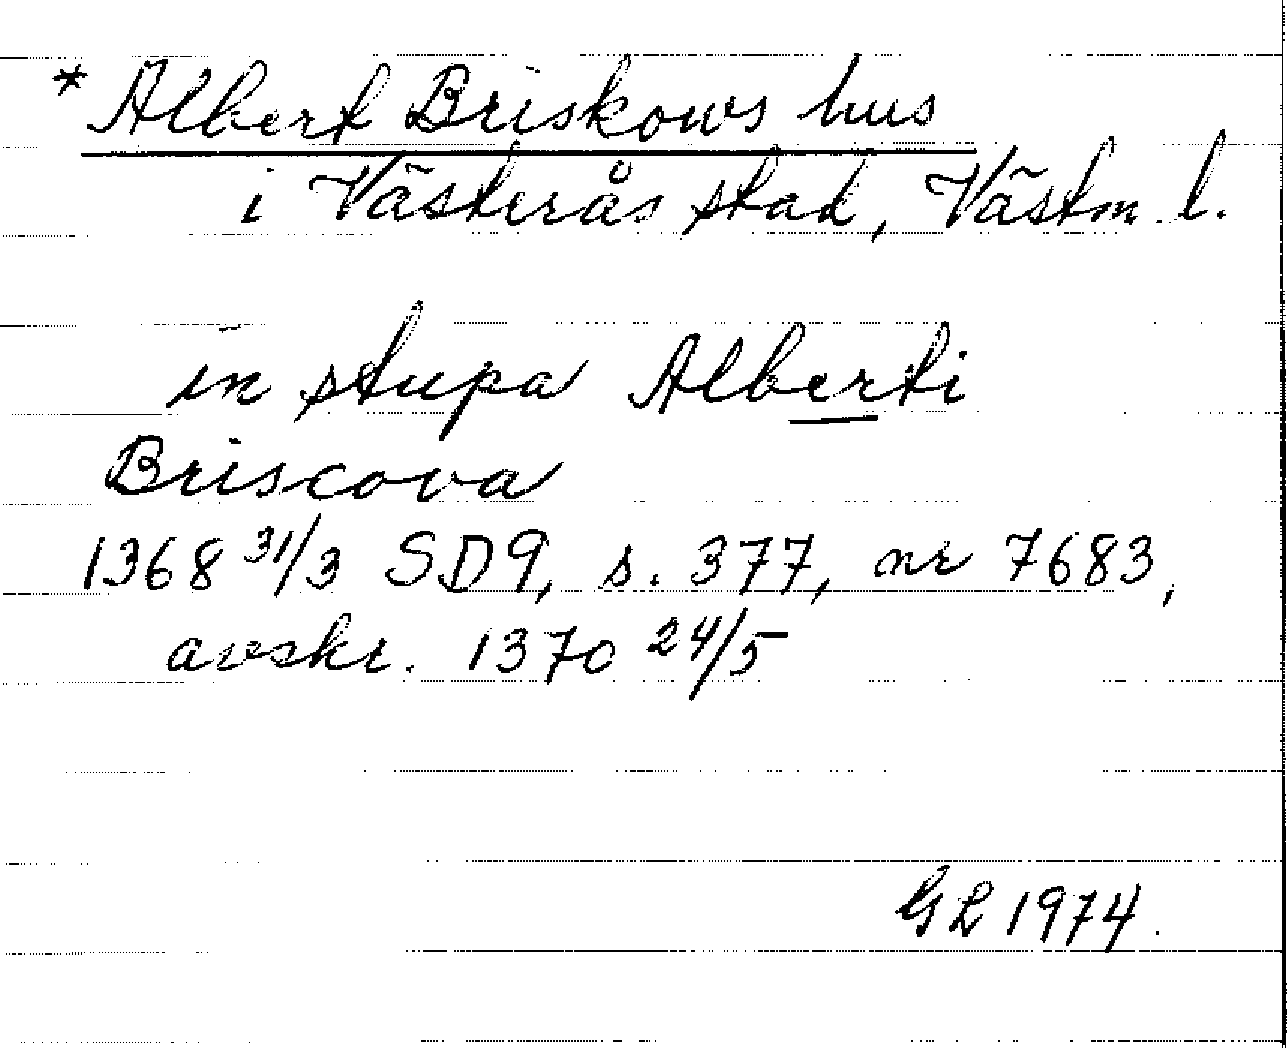 * Albert Briskows hus
i Västerås stad, Västm. l.
in stupa Alberti
Briscova
1368 31/3 SD9, s. 377, nr 7683,
avskr. 1370 24/5
GL 1974.